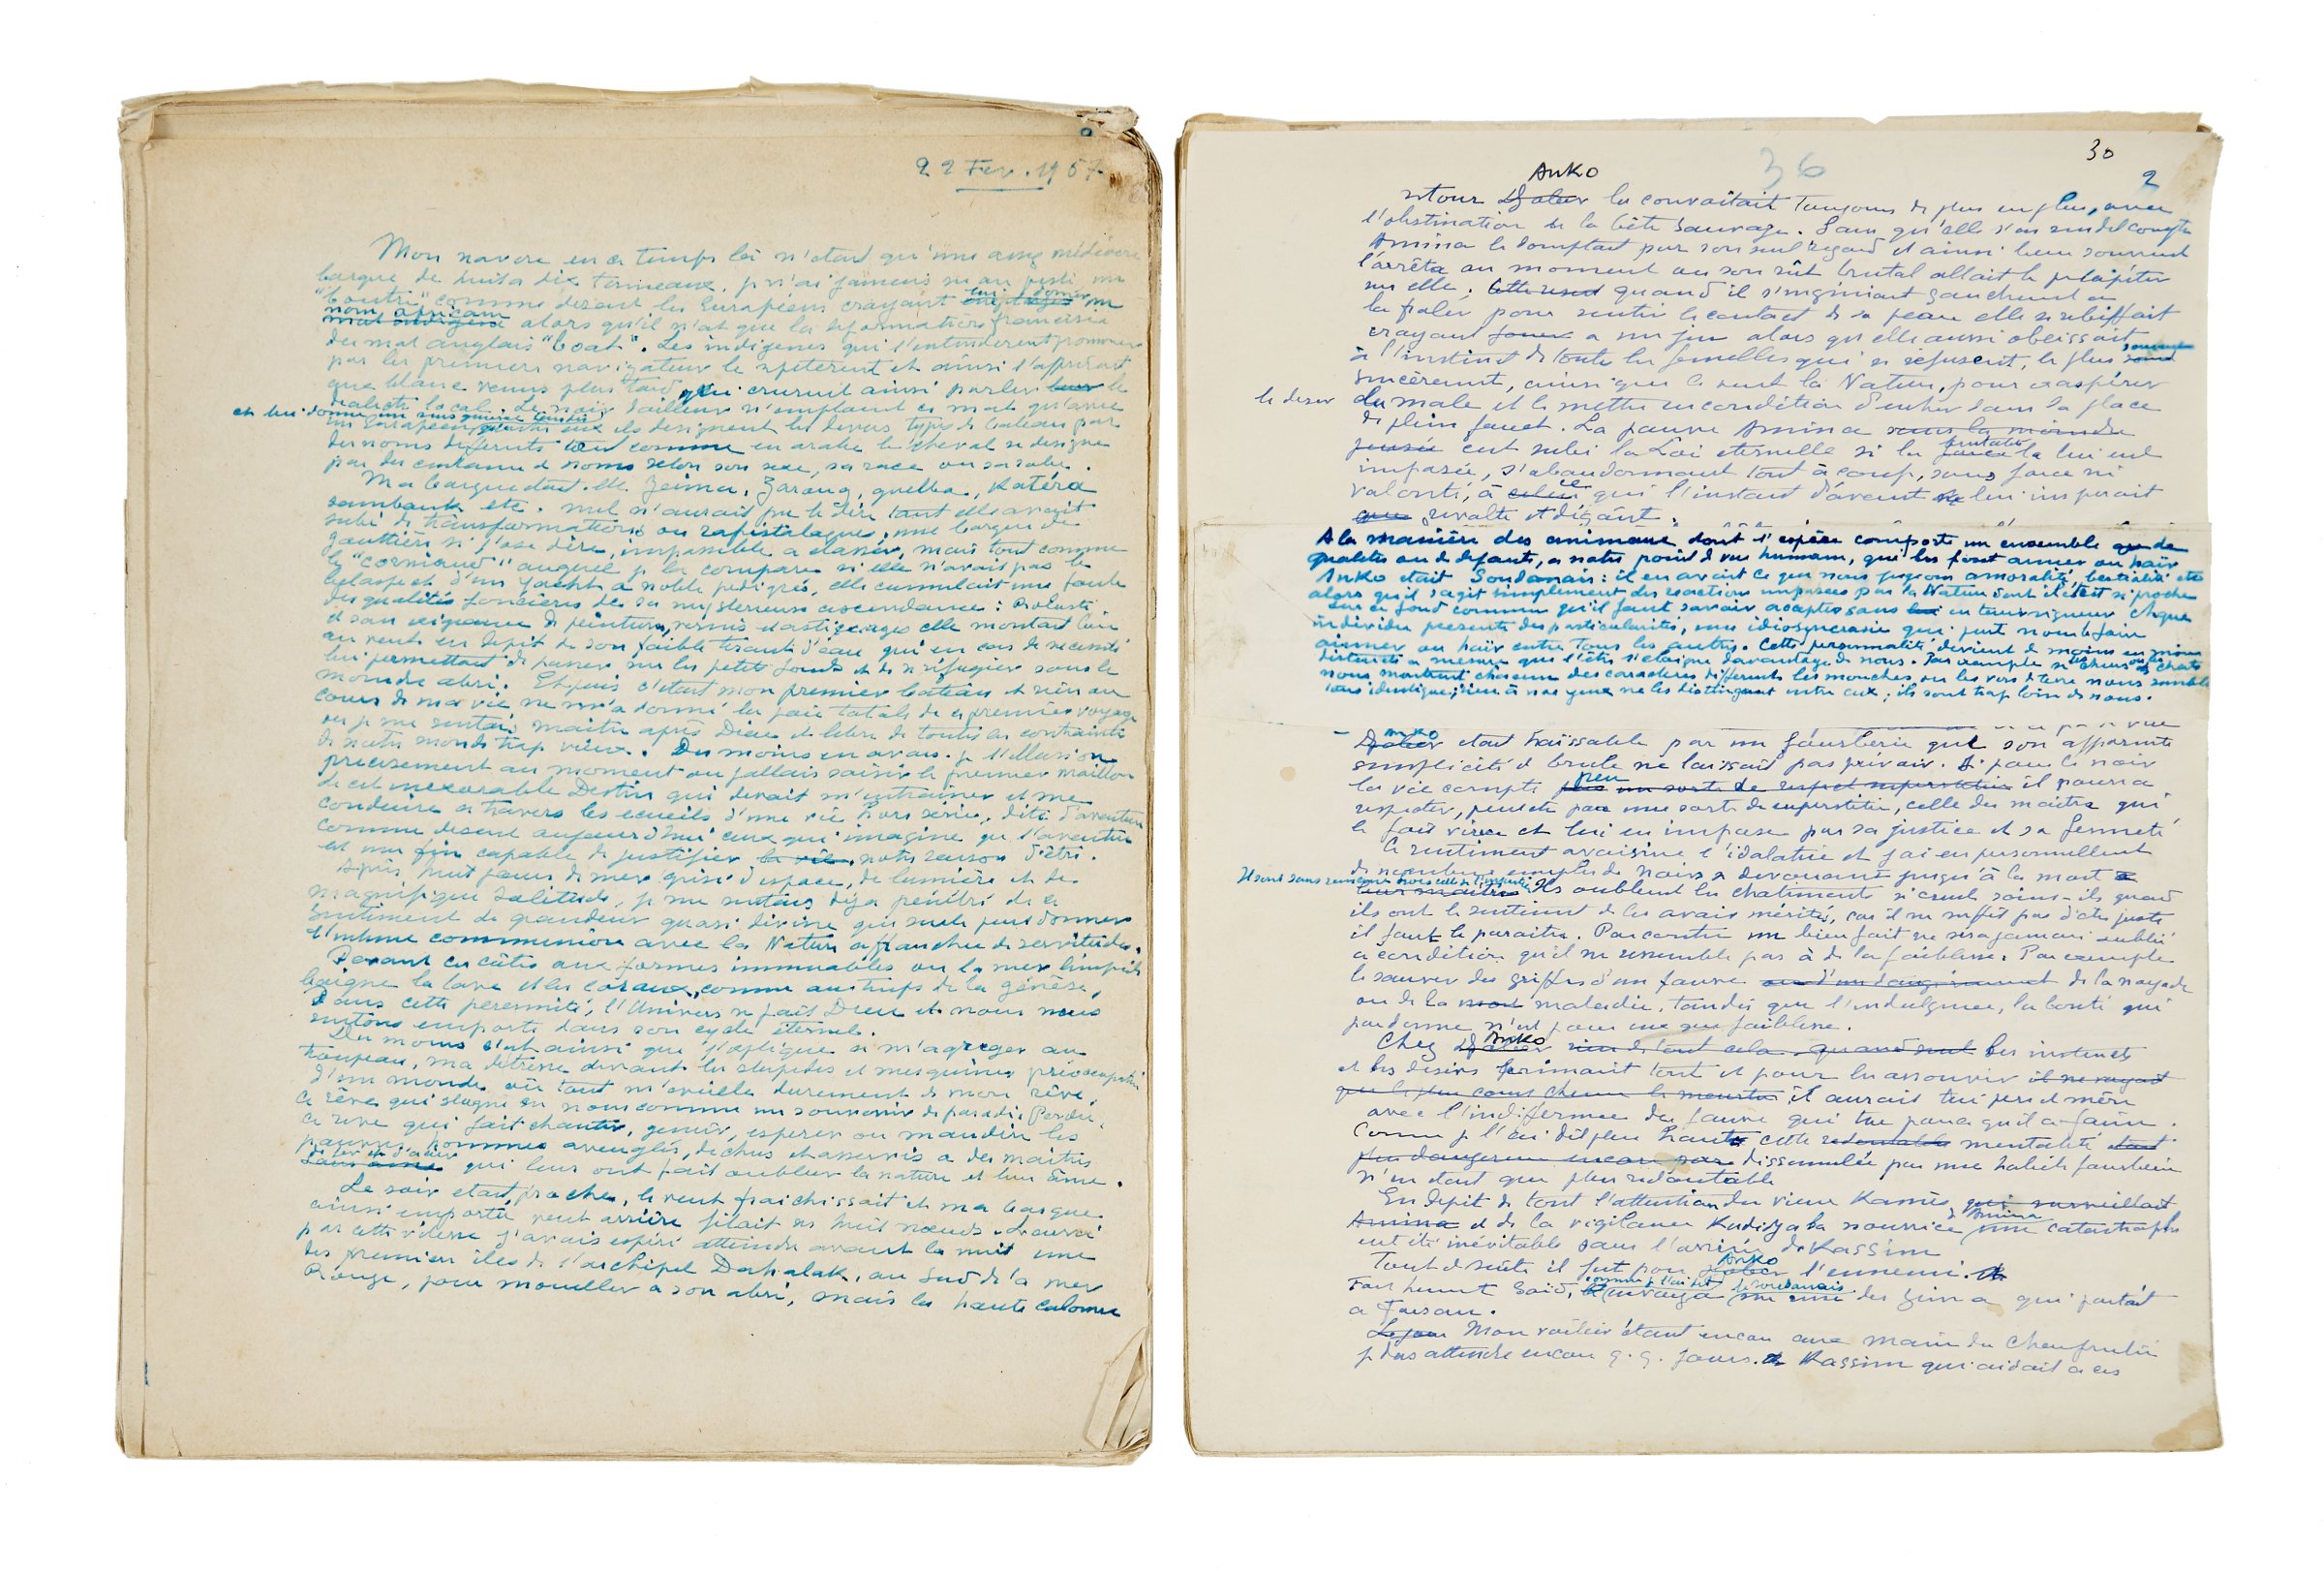 22 Fev. 1957
Mon navire en ce temps là n'etait qu'une assez médiocre
barque de huit a dix tonneaux. je n'ai jamais su au juste un
"boutre" comme disent les Européens croyant lui donner un
nom africain alors qu'il n'est que la deformation francisée
du mot anglais "boat". Les indigenes qui l'entendirent prononcer
par les premiers navigateurs le repeterent et ainsi l'apprirent
que blancs venus plus tard qui crurent ainsi parler le
dialecte local. Le noir d'ailleurs n'emploie ce mot qu'avec
et lui donne un sens general tandis
un Européen, qu'entre eux ils designent les divers types de bateaux par
des noms differents tout comme en arabe le cheval se designe
par des centaines de noms selon son sexe, sa race ou sa robe.
Ma barque etait-elle Zeima, Zaroug, guelba, Katéra
sambouk etc. nul n'aurait pu le dire tant elle avait
subi de transformations ou rafistolages, une barque de
gouttière si j'ose dire, impossible a classer, mais tout comme
le "corniaud" auquel je la compare si elle n'avait pas le
bel aspect d'un yacht a noble pedigrée, elle cumulait une foule
des qualités foncières de sa mysterieuse ascendance : Robuste
et sans exigence de peinture, vernis et astiquages elle montait bien
au vent en depit de son faible tirant d'eau qui en cas de necessité
lui permettait de passer sur les petits fonds et de se réfugier sous le
moindre abri. Et puis c'etait mon premier bateau et rien au
cours de ma vie ne m'a donné la joie totale de ce premier voyage
où je me sentais maitre après Dieu et libre de toutes les contraintes
de notre monde trop vieux. Du moins en avais-je l'illusion
precisement au moment ou j'allais saisir le premier maillon
de cet inexorable Destin qui devait m'entrainer et me
conduire a travers les ecueils d'une vie hors série, dite d'aventure
comme disent aujourd'hui ceux qui imagine que l'aventure
est une fin capable de justifier la vie, notre raison d'être.
Après huit jours de mer, grisé d'espace, de lumière et de
magnifique solitude, je me sentais déja pénétré de ce
sentiment de grandeur quasi divine que seule peut donner
l'intime communion avec la Nature affranchie de servitudes.
Devant ces côtes aux formes immuables ou la mer limpide
baigne la lave et les coraux, comme au temps de la génèse,
Dans cette perennité, l'Univers se fait Dieu et nous nous
sentons emporté dans son cycle éternel.
Du moins c'est ainsi que j'explique a m'agreger au
troupeau, ma détresse devant les stupides et mesquines préoccupations
d'un monde où tout m'eveille durement de mon rêve,
ce rêve qui stagne en nous comme un souvenir de paradis Perdu,
ce reve qui fait chanter, gemir, esperer ou maudire les
pauvres hommes aveuglés, dechus et asservis a des maitres
de fer et d'acier sans âme qui leur ont fait oublier la nature et leur âme.
Le soir etant proche, le vent fraichissait et ma barque
ainsi emportée vent arrière filait ses huit nœuds. Favorisé
par cette vitesse j'avais espéré atteindre avant la nuit une
des premieres iles de l'archipel Dahalak, au Sud de la mer
Rouge, pour mouiller a son abri, mais la haute colonne
36
30
2
Anko
retour Djaber la convoitait toujours de plus en plus, avec
l'obstination de la bête sauvage. Sans qu'elle s'en rendit compte
Amina le domptait par son seul regard et ainsi bien souvent
l'arrêta au moment ou son rût brutal allait le précipiter
sur elle. quand il s'ingéniait gauchement a
la froler pour sentir le contact de sa peau elle se rebiffait
croyant jouer a un jeu alors qu'elle aussi obeissait
à l'instinct de toute les femelles qui se refusent, le plus souvent
sincèrement, ainsi que le veut la Nature, pour exasperer
le desir du male et le mettre en condition d'entrer dans la place
de plein fouet. La pauvre Amina sans la moindre
pensée eut subi la Loi eternelle si la brutalité la lui eut
imposée, s'abandonnant tout à coup, sans force ni
volonté, à celui qui l'instant d'avant lui inspirait
que revolte et dégoût.
A la manière des animaux dont l'espèce comporte un ensemble de
qualités ou de defauts, a notre point de vue humain, qui les font aimer ou haïr
Anko etait Soudanais : il en avait ce que nous jugeons amoralité, bestialité etc
alors qu'il s'agit simplement des reactions imposées par la Nature dont il était si proche
Sur ce fond commun qu'il faut savoir accepter sans en tenir rigueur chaque
individu presente des particularités, une idiosyncrasie qui peut nous le faire
aimer ou haïr entre tous les autres. Cette personnalité devient de moins en moins
distincte a mesure que l'être s'eloigne davantage de nous. Par exemple si les chiens ou les chats
nous montrent chacun des caracteres differents les mouches ou les vers de terre nous semblent
tous identique; rien à nos yeux ne les distinguent entre eux; ils sont trop loin de nous.
Anko
Djaber etait haïssable par un fourberie que son apparente
simplicité de brute ne laissait pas prévoir. Si pour le noir
la vie compte peu il pourra
respecter, peut etre par une sorte de superstition, celle du maitre qui
le fait vivre et lui en impose par sa justice et sa fermeté
Ce sentiment avoisine l'idolatrie et j'ai eu personnellement
de nombreux exemples de Noirs a devouant jusqu'à la mort
Ils sont sans rancune Ils oublient les chatiments si cruels soient-ils quand
ils ont le sentiment de les avoir mérités, car il ne suffit pas d'être juste
il faut le paraitre. Par contre un bienfait ne sera jamais oublié
a condition qu'il ne ressemble pas à de la faiblesse. Par exemple
le sauver des griffes d'un fauve de la noyade
ou de la mort maladie, tandis que l'indulgence, la bonté qui
pardonne n'est pour eux que faiblesse.
Chez Anko rien de tout cela. quand seul les instincts
et les desirs primait tout et pour les assouvir il ne voyait
que le plus court chemin le meurtre, il aurait tué pere et mère
avec l'indifference du fauve qui tue parce qu'il a faim.
Comme je l'ai dit plus haut cette redoutable mentalité etait
plus dangereuse encore par dissimulée par une habile fourberie
n'en etait que plus redoutable
En depit de tout l'attention du vieux Kamès, qui surveillait
Amina et de la vigilance Kadidja la nourrice d'Amina une catastrophe
eut été inévitable sans l'arrivée de Kassim
Tout de suite il fut pour Anko l'ennemi.
Fort heureusement Saïd, comme je l'ai dit, envoya le soudanais sur une des Zima qui partait
a Farsan.
Mon voilier étant encore aux mains du charpentier
je dus attendre encore q. q. jours. Kassim qui aidait a ces